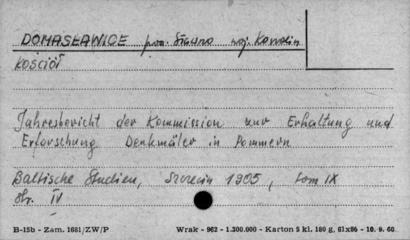 DOMASŁAWICE pow. Sławno woj. Koszalin
KOŚCIÓŁ
Jahresbericht der Kommission zur Erhaltung und
Erforschung Denkmäler in Pommern
Baltische Studien, Szczecin 1905, tom IX
str. IV
B-15b - Zam. 1681/ZW/P Wrak - 962 - 1.300.000 - Karton 5 kl. 180 g, 61x86 - 10. 9. 60.